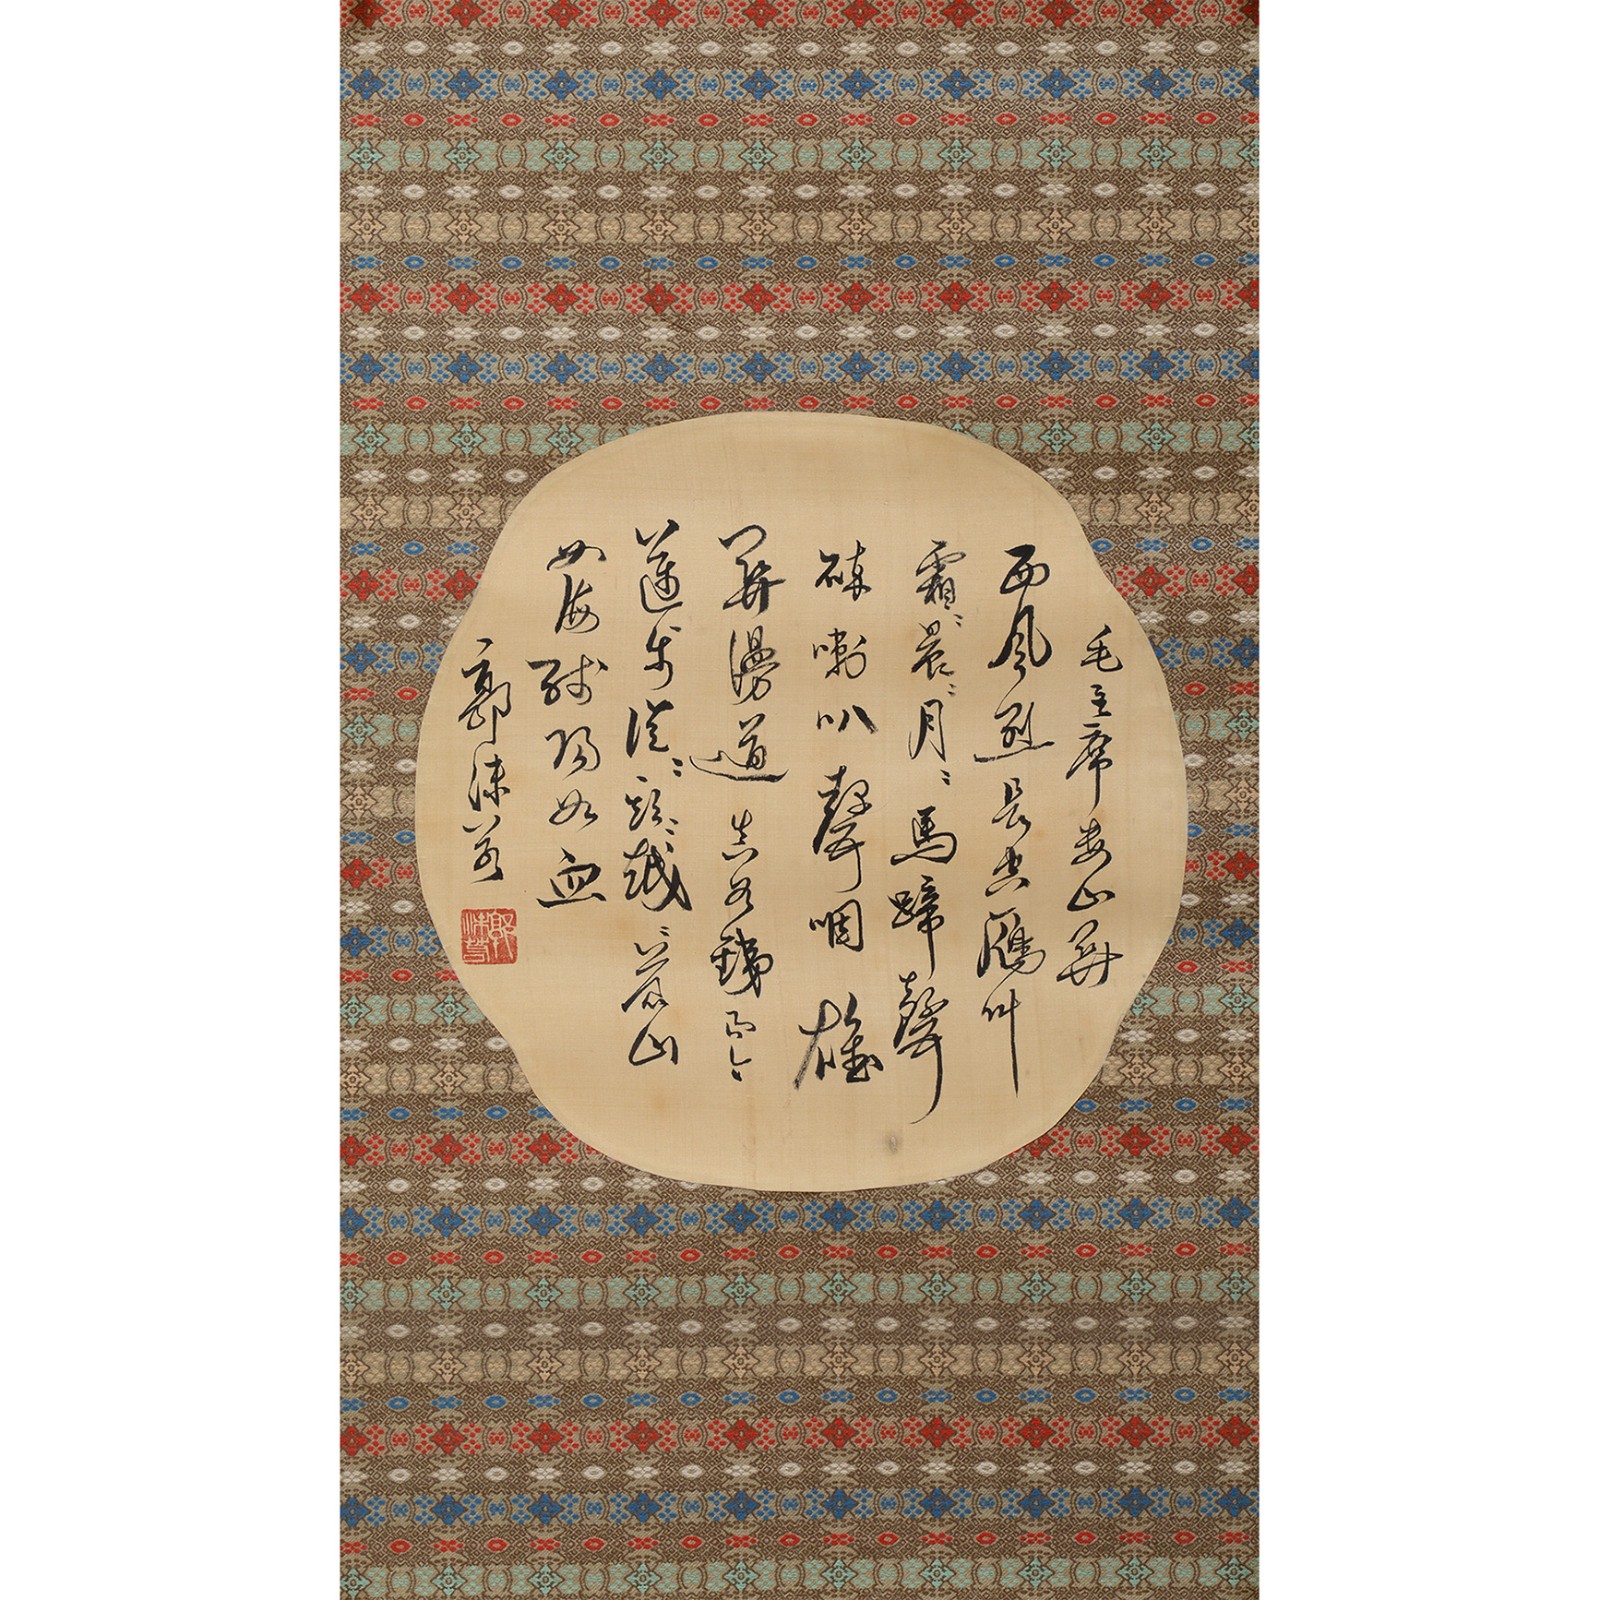 毛主席婁山關
西風烈長空鴈叫
霜〻晨〻月〻馬蹄聲
碎喇叭聲咽雄
關漫道真如銕而今
邁步從〻頭〻越〻蒼山
如海殘陽如血
郭沫若
郭沫若